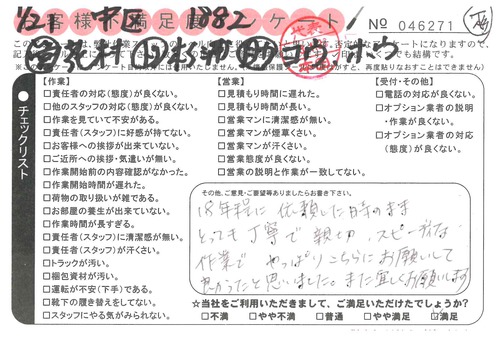 1/21 中区 1882
お客様不満足度アンケート
No 046271
チェックリスト
【作業】
□責任者の対応(態度)が良くない。
□他のスタッフの対応(態度)が良くない。
□作業を見ていて不安がある。
□責任者(スタッフ)に好感が持てない。
□お客様への挨拶が出来ていない。
□ご近所への挨拶・気遣いが無い。
□作業開始前の内容確認がなかった。
□作業開始時間が遅れた。
□荷物の取り扱いが雑である。
□お部屋の養生が出来ていない。
□作業時間が長すぎる。
□責任者(スタッフ)に清潔感が無い。
□責任者(スタッフ)が汗くさい。
□トラックが汚い。
□梱包資材が汚い。
□運転が不安(下手)である。
□靴下の履き替えをしてない。
□スタッフにやる気がみられない。
【営業】
□見積もり時間に遅れた。
□見積もり時間が長い。
□営業マンに清潔感が無い。
□営業マンが煙草くさい。
□営業マンが汗くさい。
□営業態度が良くない。
□営業の説明と作業が一致してない。
【受付・その他】
□電話の対応が良くない。
□オプション業者の説明
・作業が良くない。
□オプション業者の対応
(態度)が良くない。
その他、ご意見・ご要望等ありましたらお書き下さい。
18年程に依頼した時のまま
とっても丁寧で親切、スピーディな
作業で やっぱりこちらにお願いして
良かったと思いました。また宜しくお願いします
☆当社をご利用いただきまして、ご満足いただけたでしょうか?
□不満 □やや不満 □普通 □やや満足 ☑満足